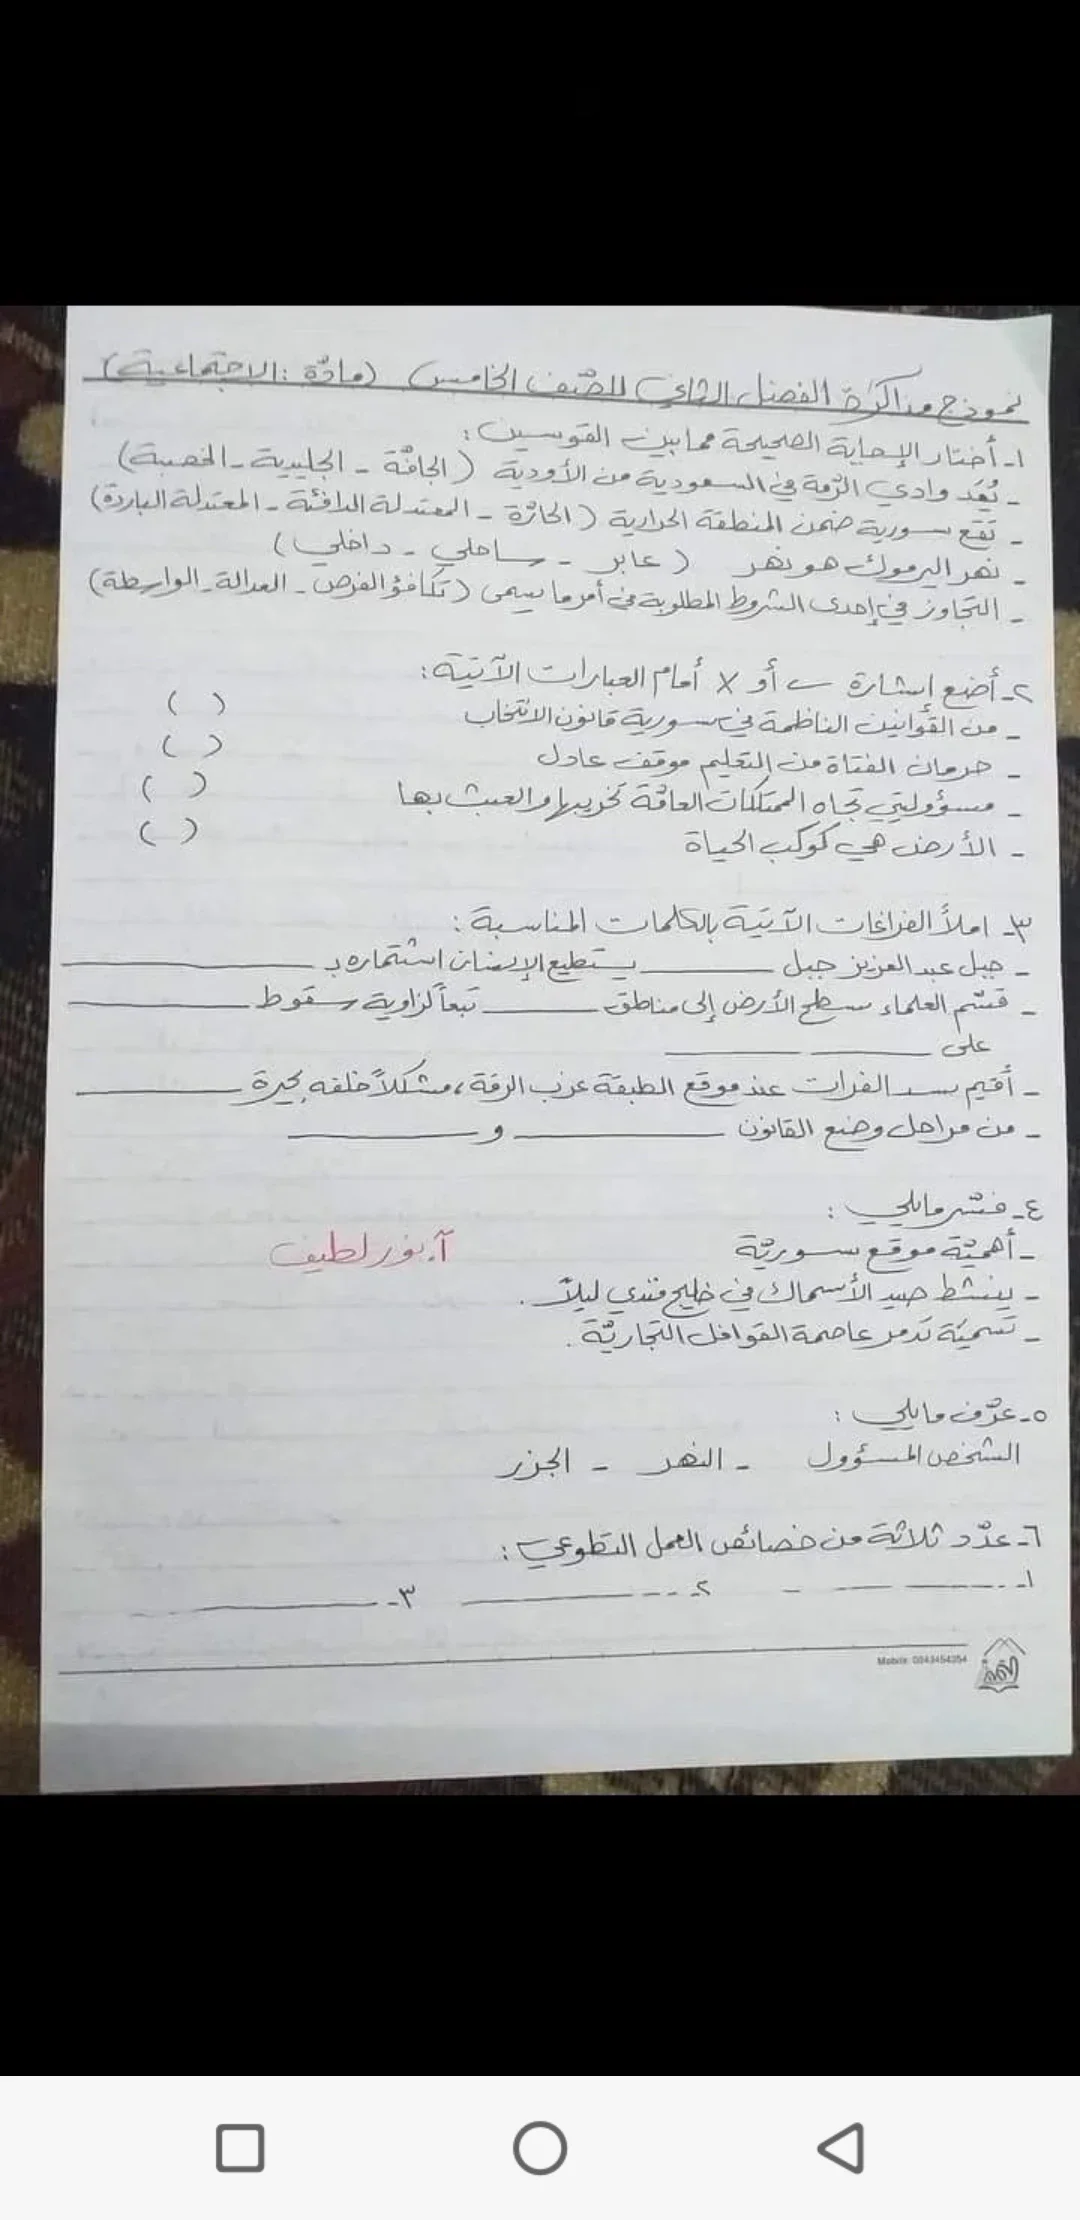 نموذج مذاكرة الفصل الثاني للصّف الخامس (مادّة: الاجتماعية)
١- أختار الإجابة الصحيحة مما بين القوسين:
- يُعَد وادي الرّمة في السعودية من الأودية (الجافّة - الجليدية - الخصبة)
- تقع سورية ضمن المنطقة الحرارية (الحارّة - المعتدلة الدافئة - المعتدلة الباردة)
- نهر اليرموك هو نهر (عابر - ساحلي - داخلي)
- التجاوز في إحدى الشروط المطلوبة في أمر ما يسمى (تكافؤ الفرص - العدالة - الواسطة)
٢- أضع إشارة ✓ أو X أمام العبارات الآتية:
- من القوانين الناظمة في سورية قانون الانتخاب ( )
- حرمان الفتاة من التعليم موقف عادل ( )
- مسؤوليتي تجاه الممتلكات العامّة تخريبها والعبث بها ( )
- الأرض هي كوكب الحياة ( )
٣- املأ الفراغات الآتية بالكلمات المناسبة:
- جبل عبد العزيز جبل ______ يستطيع الإنسان استثماره بـ ______
- قسّم العلماء سطح الأرض إلى مناطق ______ تبعاً لزاوية سقوط ______
على ______ ______
- أقيم سد الفرات عند موقع الطبقة غرب الرقة، مشكلاً خلفه بحيرة ______
- من مراحل وضع القانون ______ و ______
٤- فسّر مايلي:
- أهميّة موقع سوريّة
آ. نور لطيف
- ينشط صيد الأسماك في خليج فندي ليلاً.
- تسمية تدمر عاصمة القوافل التجاريّة.
٥- عرّف مايلي:
الشخص المسؤول - النهر - الجزر
٦- عدّد ثلاثة من خصائص العمل التطوعي:
١- ______ ٢- ______ ٣- ______
Mobile: 0943454354